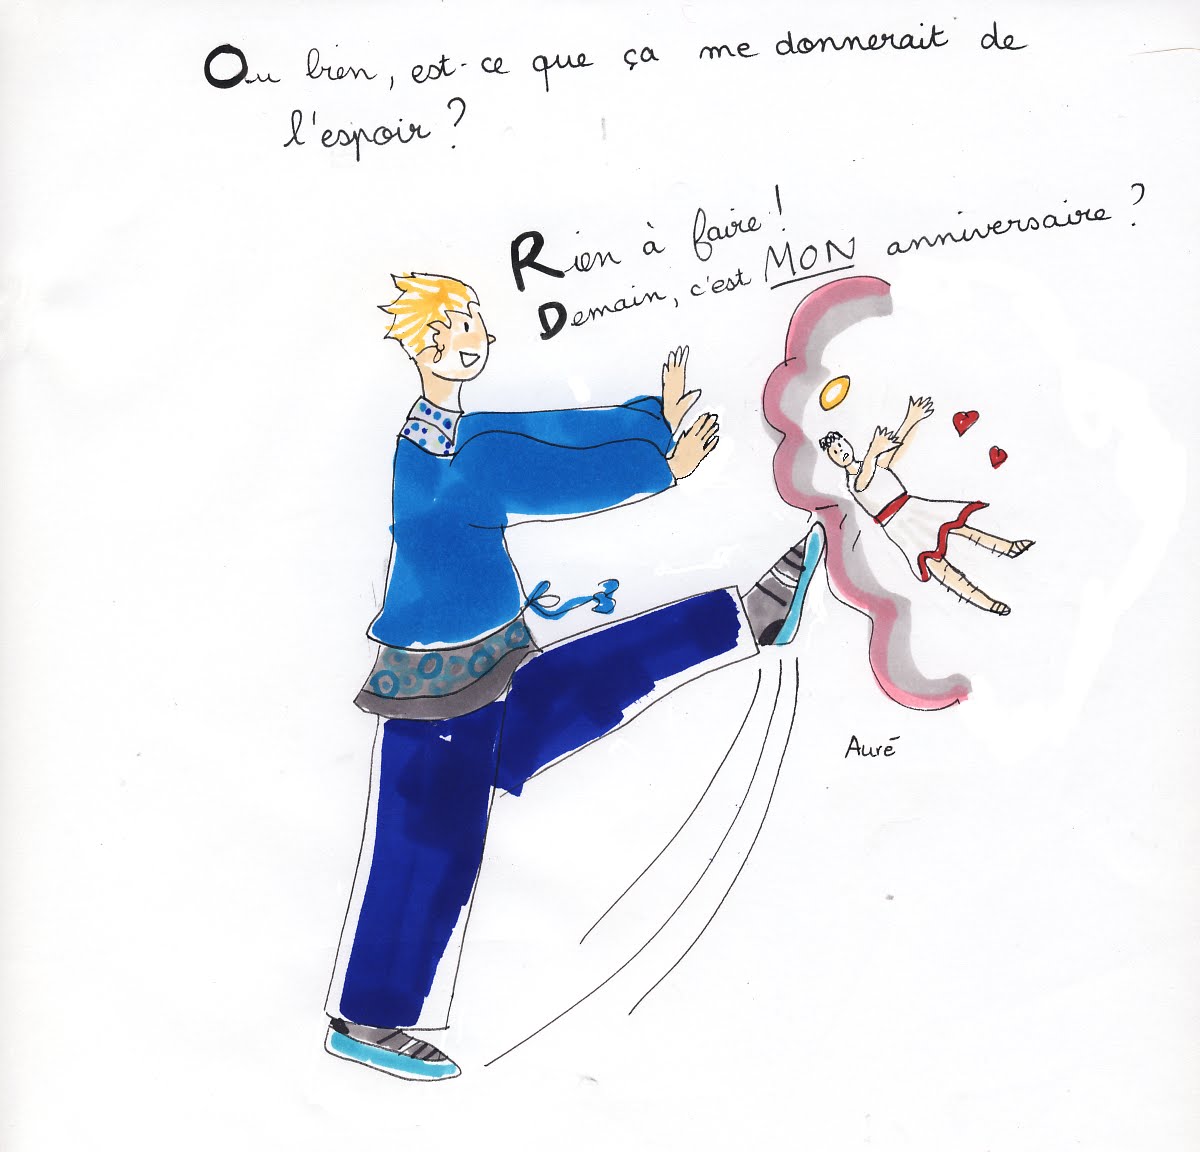 Ou bien, est-ce que ça me donnerait de
l'espoir ?
Rien à faire !
Demain, c'est MON anniversaire ?
Auré